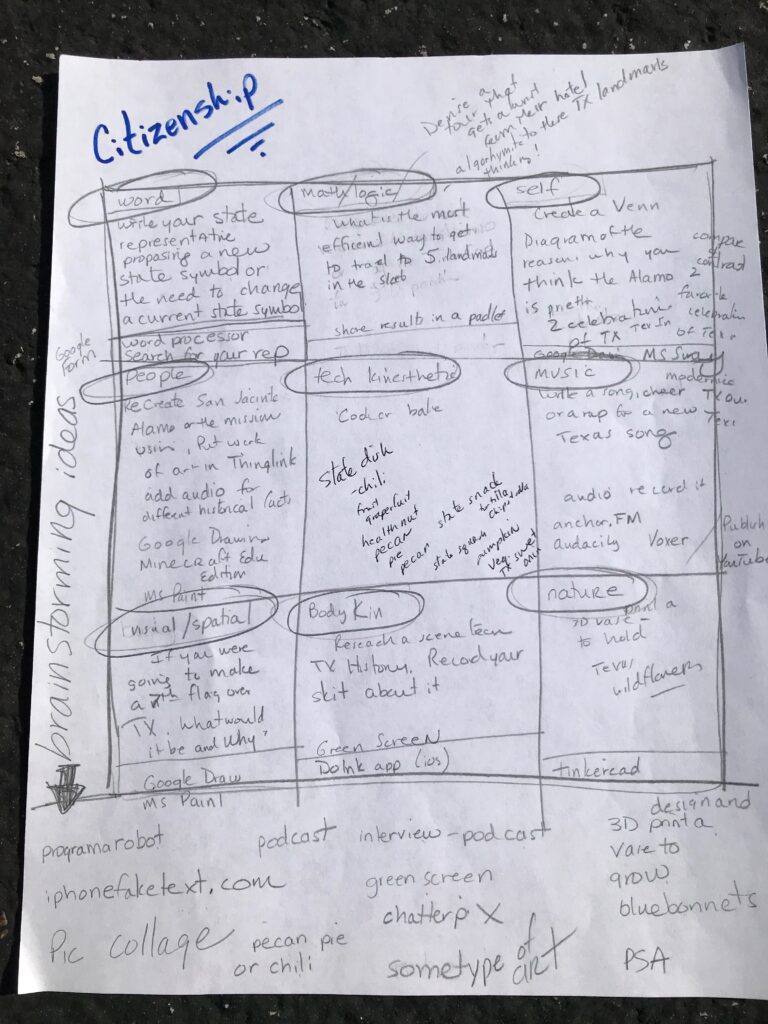 Citizenship
Devise a
tour that
gets a tourist
from their hotel
to these TX landmarks
algorhymitc
thinking!
word
write your state
representative
proposing a new
state symbol or
the need to change
a current state symbol
word processor
search for your rep
Google
Form
math/logic
What is the most
efficient way to get
to travel to 5 landmarks
in the state
share results in a padlet
self
Create a Venn
Diagram of the
reasons why you
think the Alamo
is
2 celebrations
of TX
compare
contrast
2
favorite
celebrations
of Texas
Google Draw MS
People
ReCreate San Jacinto
Alamo or the mission
using, Put work
of art in Thinglink
add audio for
different historical facts
Google Drawing
Minecraft Edu
Edition
ms Paint
tech kinesthetic
Cook or bake
State dish
-chili
fruit
grapefruit
health nut
pecan
pie
pecan
state snack
tortilla
chips
state squash
pumpkin
veg:
TX sweet
onion
MUSIC
write a song, cheer
or a rap for a new
Texas song
modernize
TX our
Texas
audio record it
anchor.FM
audacity Voxer
Publish
on
YouTube
visual/spatial
If you were
going to make
a 7th flag over
TX, what would
it be and why?
Google Draw
MS Paint
Body Kin
Reseach a scene
TX History. Recod your
skit about it
Green Screen
DoInk app (ios)
nature
print a
3D vase
to hold
Texas
wildflowers
tinkercad
brainstorming ideas
program a robot
podcast
interview-podcast
design and
3D print a
vase to
grow
bluebonnets
iphonefaketext.com
green screen
chatterpix
Pic collage
pecan pie
or chili
sometype of
art
PSA